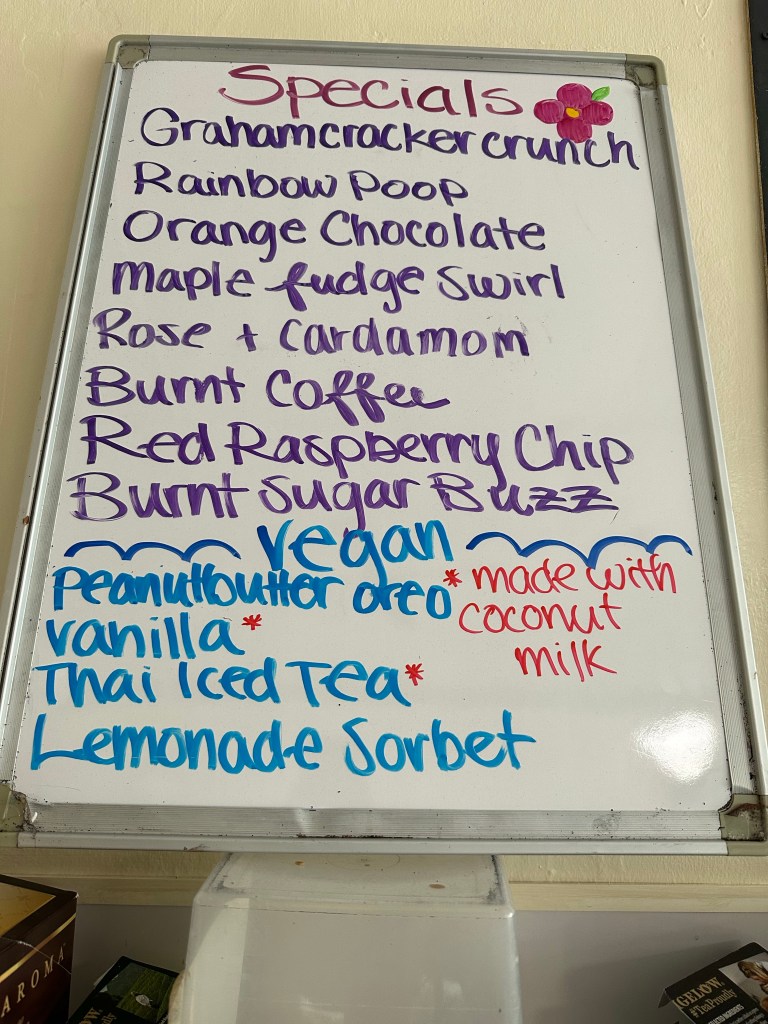 Specials
Grahamcracker crunch
Rainbow Poop
Orange Chocolate
maple fudge swirl
Rose + Cardamom
Burnt Coffee
Red Raspberry Chip
Burnt Sugar Buzz
vegan
Peanutbutter oreo*
vanilla*
Thai Iced Tea*
Lemonade Sorbet
* made with
coconut
milk
AROMA
GELOW
#TeaProudly